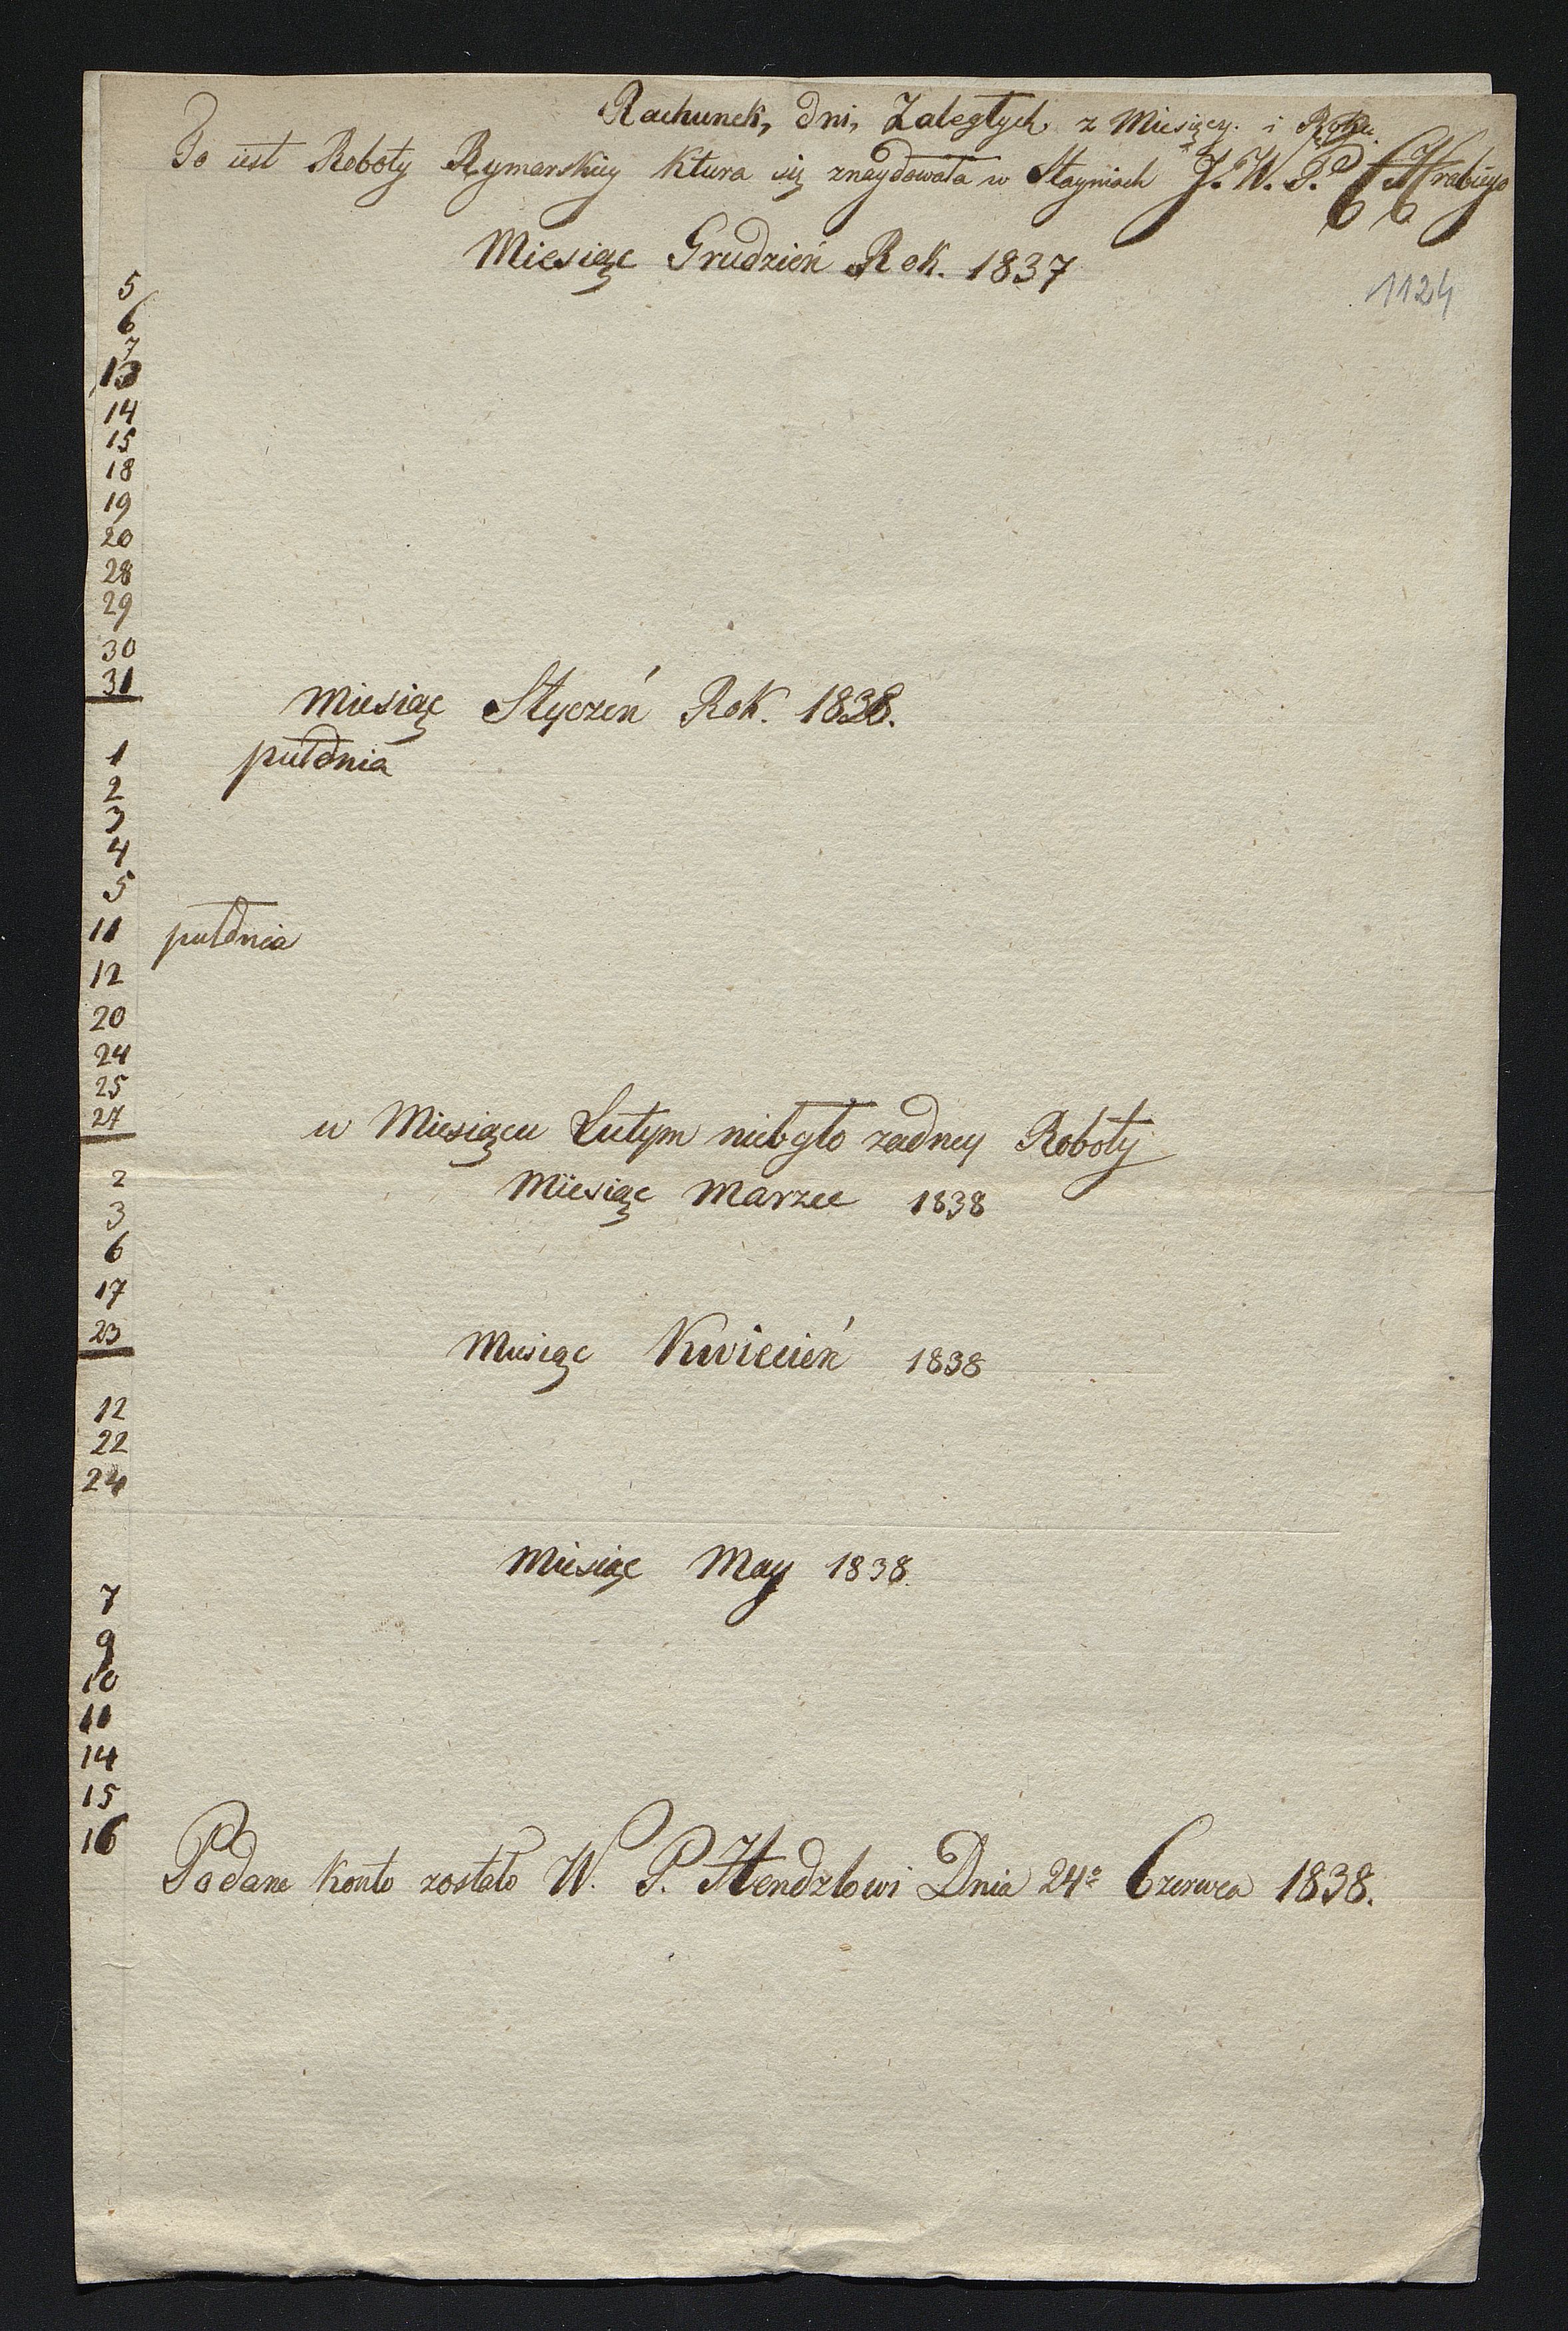 Rachunek, dni, Zaległych z Miesięcy. i Roku
To iest Roboty Rymarskiey ktura się znaydowała w Stayniach J. W. P. Hrabiego
Miesiąc Grudzień Rok. 1837
1124
5
6
7
13
14
15
18
19
20
28
29
30
31
Miesiąc Styczeń Rok. 1838.
1 pułdnia
2
3
4
5
11 pułdnia
12
20
24
25
27
w Miesiącu Lutym niebyło zadney Roboty
Miesiąc Marzec 1838
2
3
6
17
23
Miesiąc Kwiecień 1838
12
22
24
Miesiąc May 1838
7
9
10
11
14
15
16
Podane Konto zostało W. P. Hendzlowi Dnia 24º Czerwca 1838.